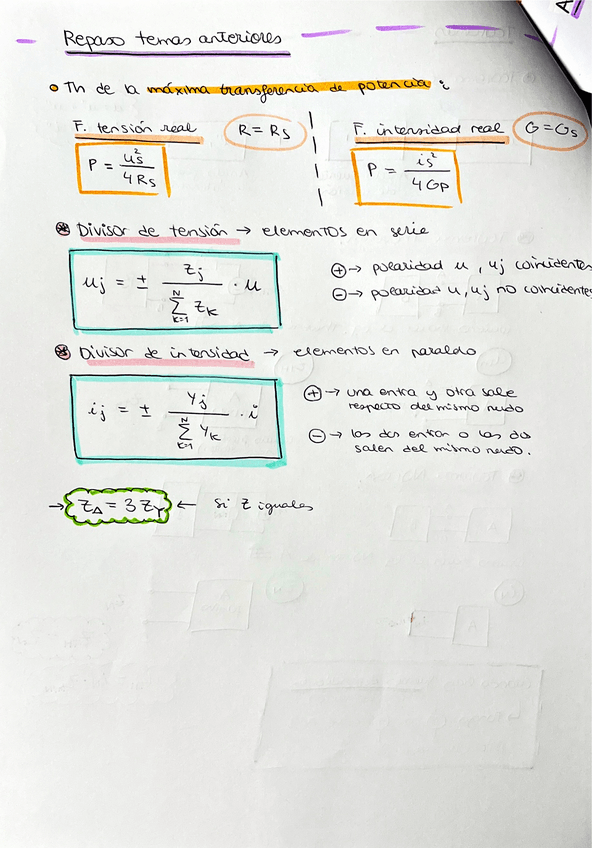 Repaso temas anteriores
• Th de la máxima transferencia de potencia:
F. tensión real R = Rs
P = us² / 4Rs
F. intensidad real G = Gs
P = is² / 4Gp
⊛ Divisor de tensión → elementos en serie
uj = ± Zj / ∑ᴺₖ₌₁ Zk · u
⊕ → polaridad u, uj coincidentes
⊖ → polaridad u, uj no coincidentes
⊛ Divisor de intensidad → elementos en paralelo
ij = ± Yj / ∑ᴺₖ₌₁ Yk · i
⊕ → una entra y otra sale
respecto del mismo nudo
⊖ → las dos entran o las dos
salen del mismo nudo.
→ Z∆ = 3 ZY ← si Z iguales